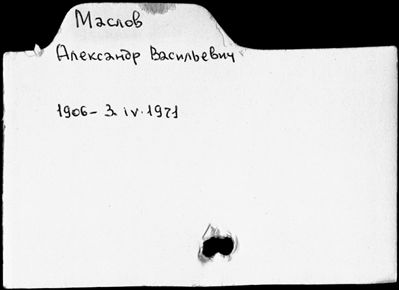 Маслов
Александр Васильевич
1906- 3. iv. 1971